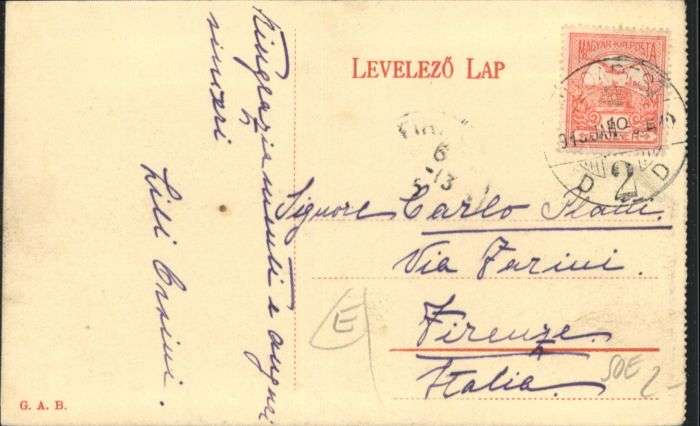 LEVELEZŐ LAP
MAGYAR KIR. POSTA
913 JAN
2
D D
6
13
Ringraziamenti e auguri
sinceri
Lili Orsini.
Signore Carlo Piatti.
Via Farini.
Firenze.
Italia.
E
50E 2-
G. A. B.